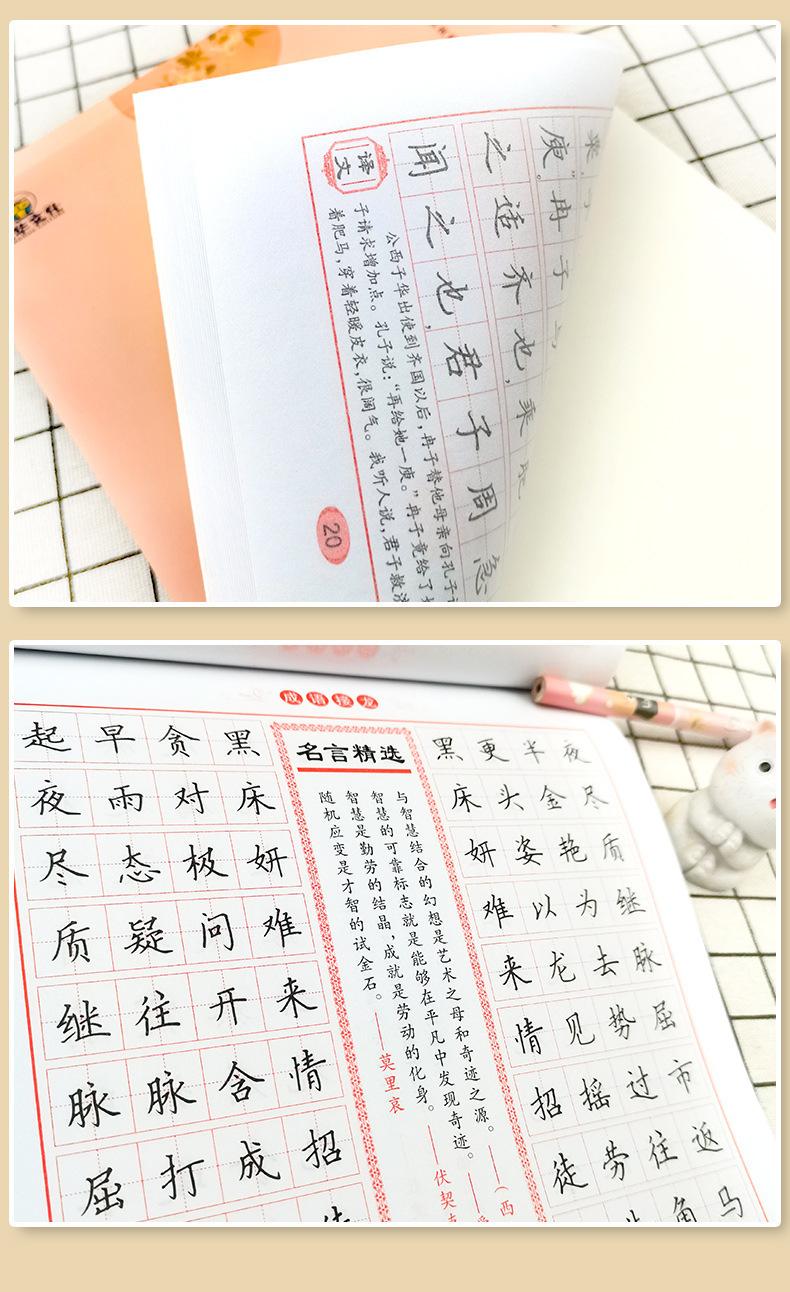 庾。冉子与
之适齐也,乘肥
闻之也,君子周急
译文
公西子华出使到齐国以后,冉子替他母亲向孔子
子请求增加点。孔子说:“再给她一庾。”冉子竟给了
着肥马,穿着轻暖皮衣,很阔气。我听人说,君子救济
20
成语接龙
起早贪黑
夜雨对床
尽态极妍
质疑问难
继往开来
脉脉含情
屈打成招
名言精选
与智慧结合的幻想是艺术之母和奇迹之源。——（西
智慧的可靠标志就是能够在平凡中发现奇迹。——
智慧是勤劳的结晶,成就是劳动的化身。——伏契
随机应变是才智的试金石。——莫里哀
黑更半夜
床头金尽
妍姿艳质
难以为继
来龙去脉
情见势屈
招摇过市
徒劳往返
角马